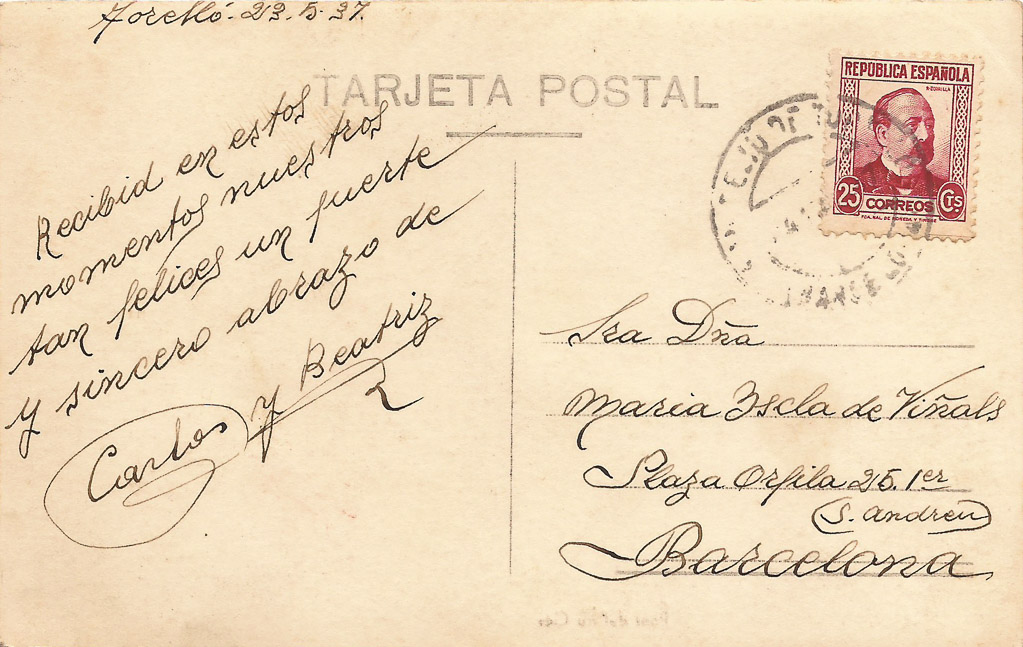 Torelló. 23.5.37.
TARJETA POSTAL
Recibid en estos
momentos nuestros
tan felices un fuerte
y sincero abrazo de
Carlos y Beatriz
REPÚBLICA ESPAÑOLA
R. ZORRILLA
25 CORREOS CTS
Sra Dña
Maria Iscla de Viñals
Plaza Orfila 25. 1er
(S. Andreu)
Barcelona